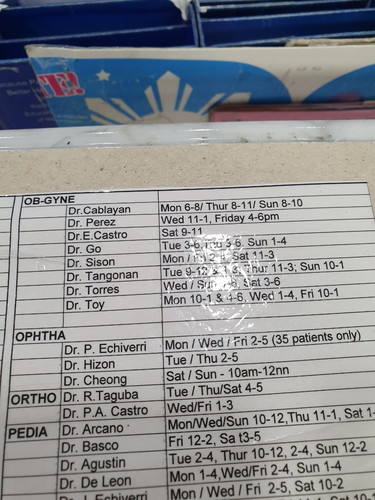 OB-GYNE
Dr.Cablayan Mon 6-8/ Thur 8-11/ Sun 8-10
Dr. Perez Wed 11-1, Friday 4-6pm
Dr.E.Castro Sat 9-11
Dr. Go Tue 3-6, Thu 3-6, Sun 1-4
Dr. Sison Mon / Fri Sat 11-3
Dr. Tangonan Tue 9-12 Thur 11-3; Sun 10-1
Dr. Torres Wed / Sat 3-6
Dr. Toy Mon 10-1 & 4-6, Wed 1-4, Fri 10-1
OPHTHA
Dr. P. Echiverri Mon / Wed / Fri 2-5 (35 patients only)
Dr. Hizon Tue / Thu 2-5
Dr. Cheong Sat / Sun - 10am-12nn
ORTHO Dr. R.Taguba Tue / Thu/Sat 4-5
Dr. P.A. Castro Wed/Fri 1-3
PEDIA Dr. Arcano Mon/Wed/Sun 10-12,Thu 11-1, Sat 1-
Dr. Basco Fri 12-2, Sa t3-5
Dr. Agustin Tue 2-4, Thur 10-12, 2-4, Sun 12-2
Dr. De Leon Mon 1-4,Wed/Fri 2-4, Sun 1-4
Dr. J. Echiverri Mon / Wed / Fri 2-5, Sat 10-2